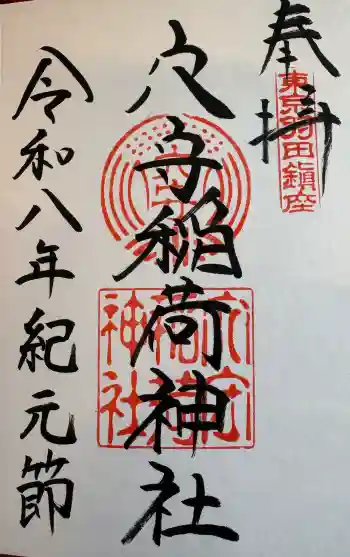 奉拝
東京羽田鎮座
穴守稲荷神社
穴守稲荷神社
令和八年紀元節